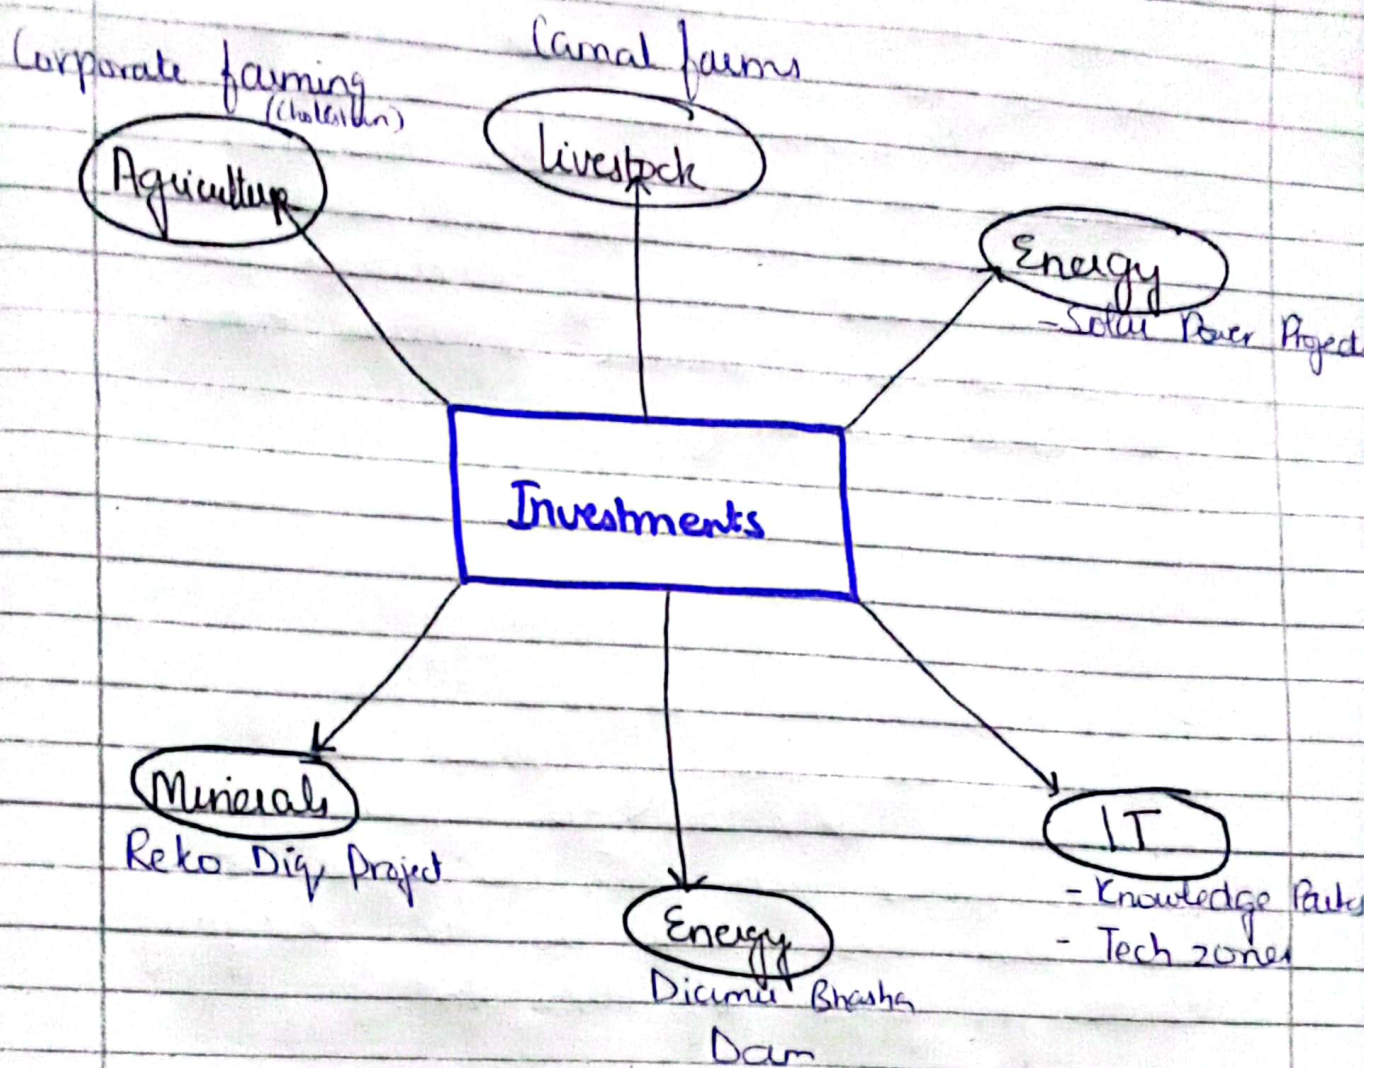 Corporate farming
(Cholistan)
Agriculture
Camal farms
Livestock
Energy
- Solar Power Project
Investments
Minerals
Reko Diq Project
Energy
Diamir Bhasha
Dam
IT
- Knowledge Parks
- Tech zones